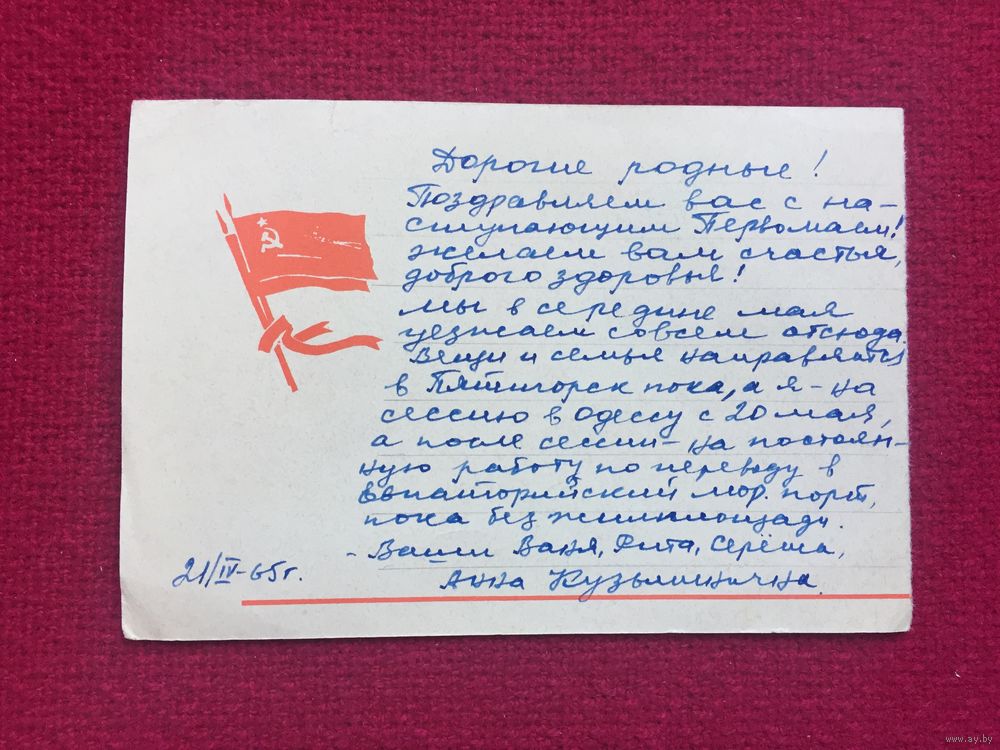 Дорогие родные!
Поздравляем вас с на-
ступающим Первомаем!
желаем вам счастья,
доброго здоровья!
Мы в середине мая
уезжаем совсем отсюда.
Вещи и семья направятся
в Пятигорск пока, а я - на
сессию в Одессу с 20 мая,
а после сессии - на постоян-
ную работу по переводу в
Евпаторийский мор. порт,
пока без жилплощади.
- Ваши Ваня, Рита, Серёжа,
Анна Кузьминична.
21/IV-65г.
www.ay.by